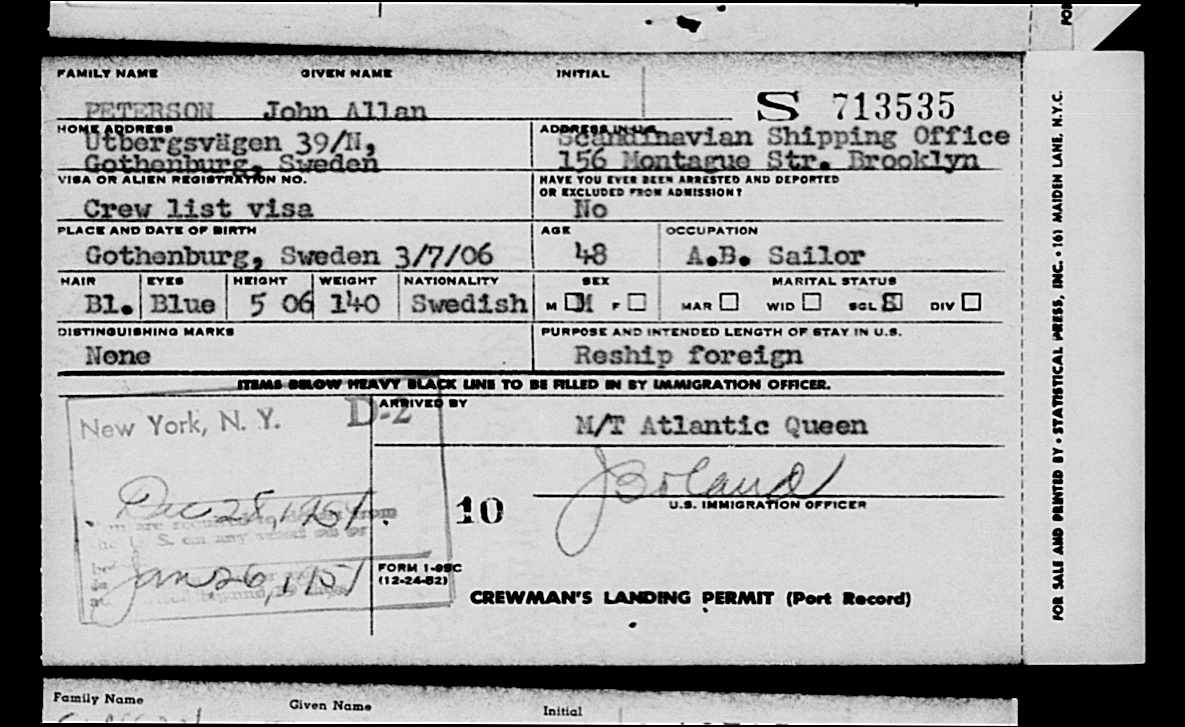 FOR
FAMILY NAME GIVEN NAME INITIAL
PETERSON John Allan
S 713535
HOME ADDRESS
Utbergsvägen 39/N,
Gothenburg, Sweden
ADDRESS IN U.S.
Scandinavian Shipping Office
156 Montague Str. Brooklyn
VISA OR ALIEN REGISTRATION NO.
Crew list visa
HAVE YOU EVER BEEN ARRESTED AND DEPORTED
OR EXCLUDED FROM ADMISSION?
No
PLACE AND DATE OF BIRTH AGE OCCUPATION
Gothenburg, Sweden 3/7/06 48 A.B. Sailor
HAIR EYES HEIGHT WEIGHT NATIONALITY SEX MARITAL STATUS
Bl. Blue 5 06 140 Swedish M M F MAR WID SGL S DIV
DISTINGUISHING MARKS PURPOSE AND INTENDED LENGTH OF STAY IN U.S.
None Reship foreign
ITEMS BELOW HEAVY BLACK LINE TO BE FILLED IN BY IMMIGRATION OFFICER.
New York, N. Y. D-2
ARRIVED BY
M/T Atlantic Queen
JBoland
U.S. IMMIGRATION OFFICER
Dec 28,
10
are from
S. on any
Jan 26,
FORM I-95C
(12-24-52)
CREWMAN'S LANDING PERMIT (Port Record)
FOR SALE AND PRINTED BY • STATISTICAL PRESS, INC. • 161 MAIDEN LANE, N.Y.C.
Family Name Given Name Initial